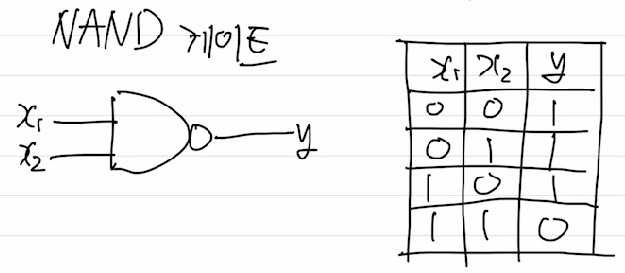 NAND 게이트
x₁ x₂ y
x₁
x₂ y
0 0 1
0 1 1
1 0 1
1 1 0